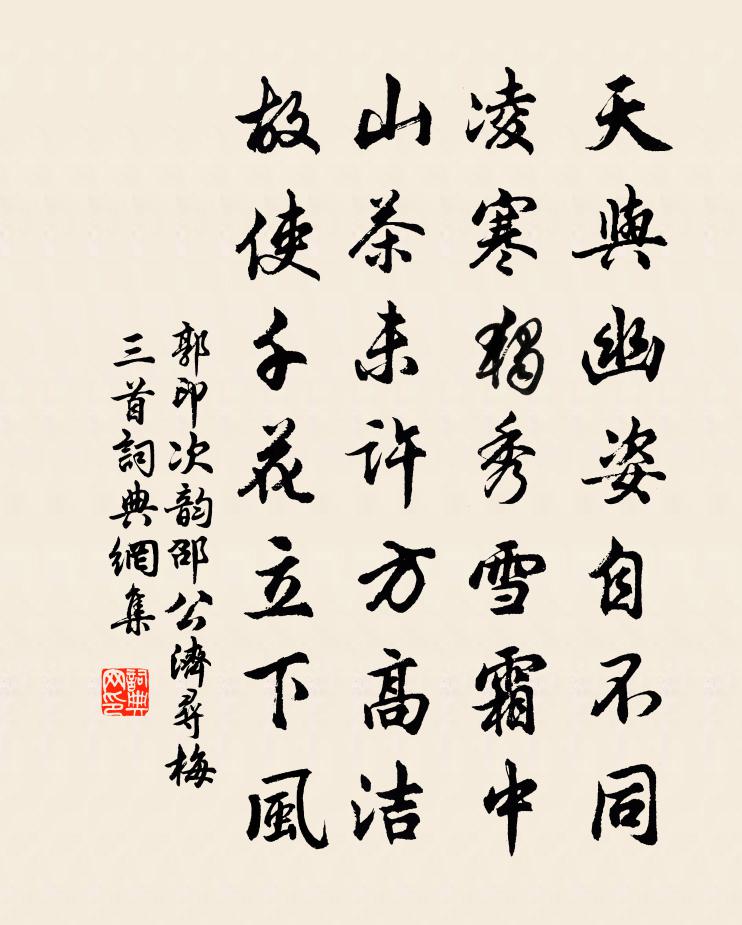 天與幽姿自不同
凌寒獨秀雪霜中
山茶未許方高洁
故使千花立下風
郭印次韵邵公濟尋梅
三首詞典網集
詞典网印